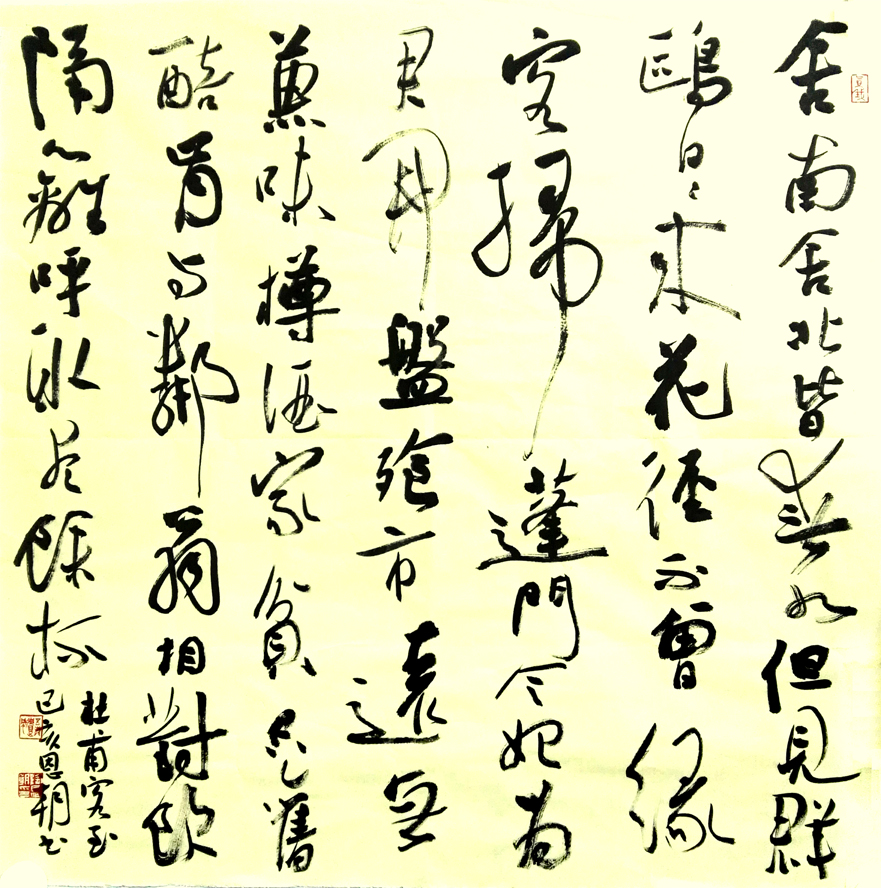 舍南舍北皆春水但見群
鷗日々來花徑不曾緣
客掃蓬門今始為
君開盤飧市遠無
兼味樽酒家貧只舊
醅肯與鄰翁相對飲
隔籬呼取盡餘杯
杜甫客至
己亥恩朝书